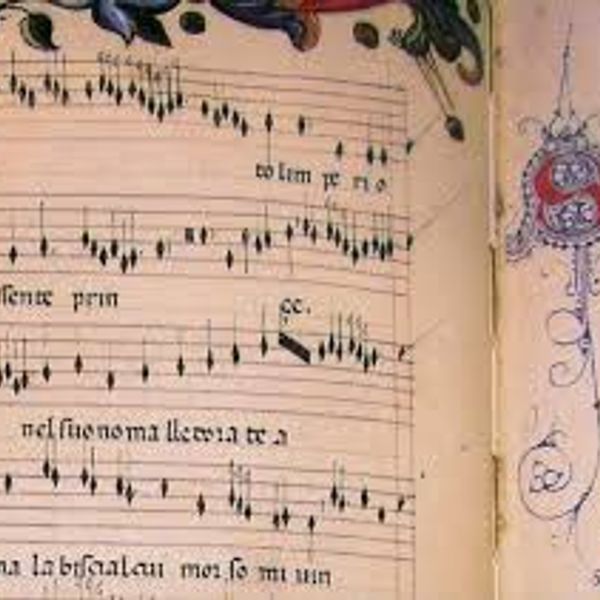 to lim pe rio
sente prin
ce.
nel suo no ma lleto ra te a
na la biscia al cui mor so mi uin
S